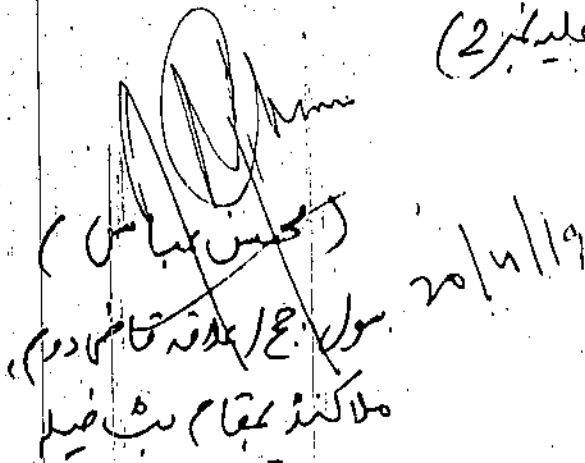 علیہ نمبر 2)
(محسن عباس)
20/11/19
سول جج / علاقہ قاضی دوم،
ملاکنڈ بمقام بٹ خیلہ